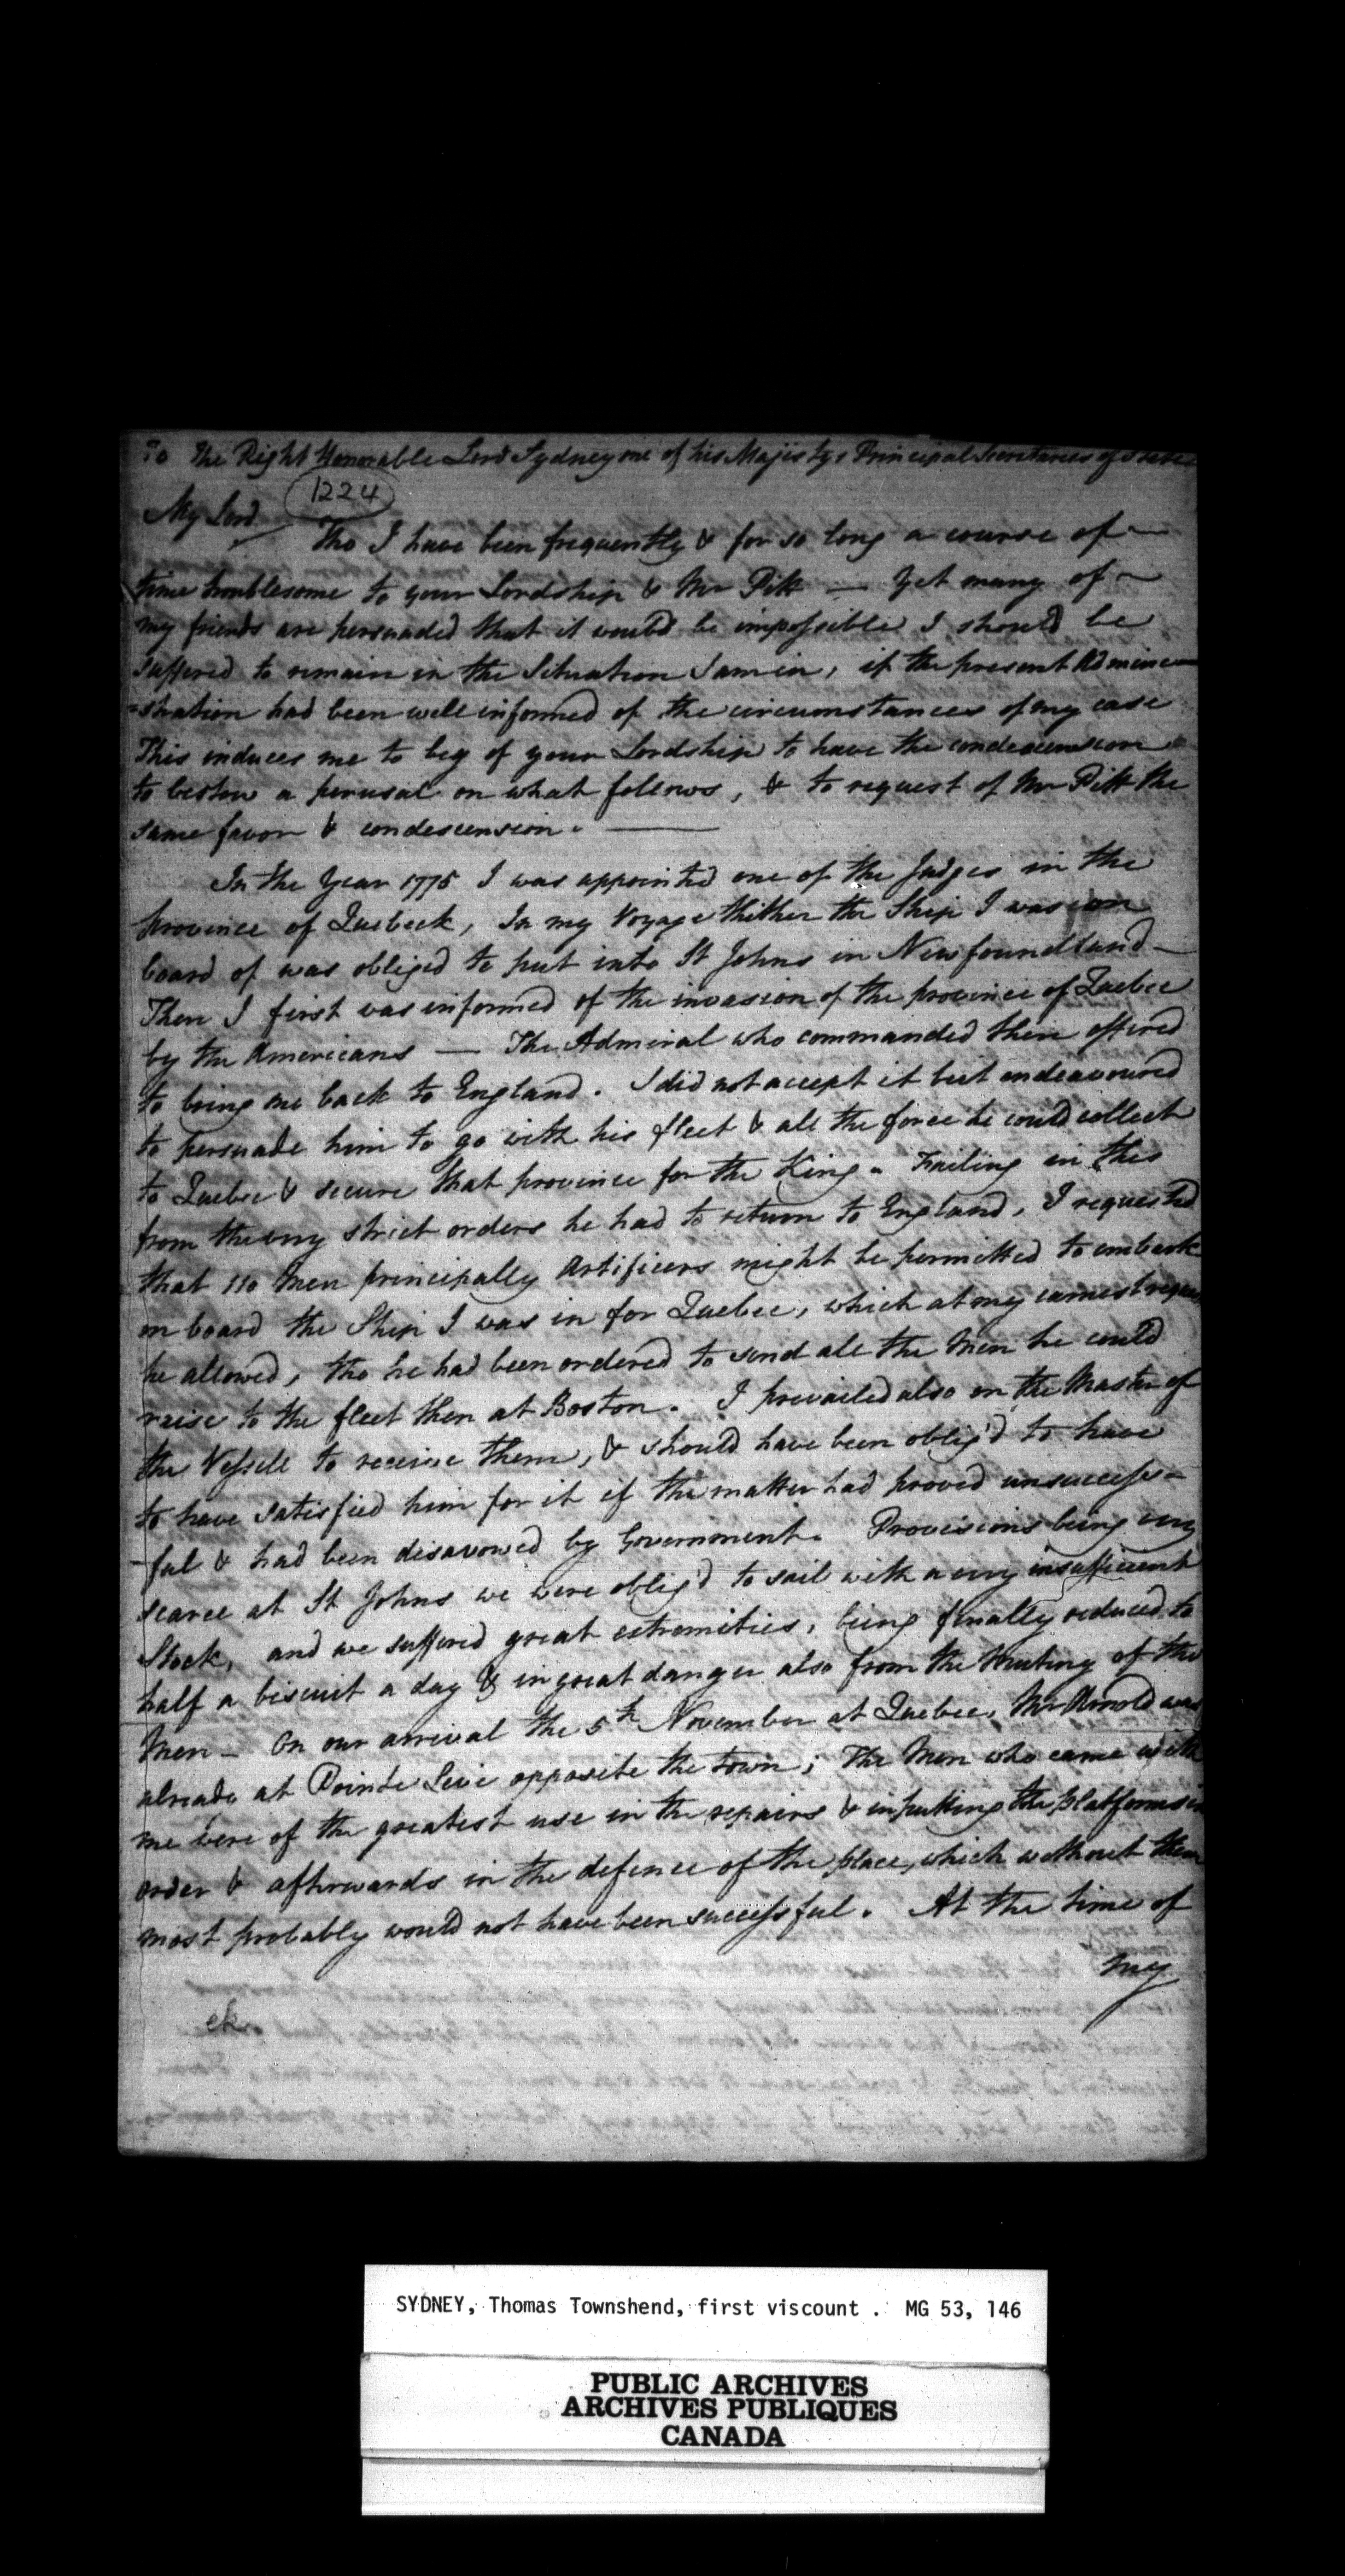 To The Right Honorable Lord Sydney one of his Majisty's Principal Secretaries of State
1224
My Lord
Tho I have been frequently & for so long a course of
time troublesome to your Lordship & Mr Pitt — Yet many of
my friends are persuaded that it would be impossible I should be
suffered to remain in the Situation I am in, if the present Admini
=stration had been well informed of the circumstances of my case
This induces me to beg of your Lordship to have the condescension
to bestow a perusal on what follows, & to request of Mr Pitt the
same favor & condescension. —
In the Year 1775 I was appointed one of the Judges in the
Province of Quebeck, In my Voyage thither the Ship I was on
board of was obliged to put into St Johns in Newfoundland —
Then I first was informed of the invasion of the province of Quebec
by the Americans — The Admiral who commanded there offered
to bring me back to England. I did not accept it but endeavoured
to persuade him to go with his fleet & all the force he could collect
to Quebec & secure that province for the King. Failing in this
from the very strict orders he had to return to England, I requested
that 110 Men principally Artificers might be permitted to embark
on board the Ship I was in for Quebec, which at my earnest request
he allowed, tho he had been ordered to send all the Men he could
raise to the fleet then at Boston. I prevailed also on the Master of
the Vessell to receive them, & should have been oblig'd to have
to have satisfied him for it if the matter had proved unsuccess=
-ful & had been disavowed by Government. Provisions being very
scarce at St Johns we were oblig'd to sail with a very insufficient
Stock, and we suffered great extremities, being finally reduced to
half a biscuit a day & in great danger also from the Mutiny of the
Men — On our arrival the 5th November at Quebec, Mr Arnold was
already at Pointe Levi opposite the town; The Men who came with
me were of the greatest use in the repairs & in putting the platforms in
order & afterwards in the defence of the place, which without them
most probably would not have been successful. At the time of
my
ek
SYDNEY, Thomas Townshend, first viscount . MG 53, 146
PUBLIC ARCHIVES
ARCHIVES PUBLIQUES
CANADA